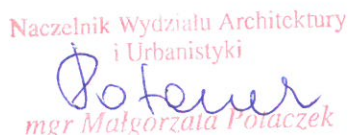 Naczelnik Wydziału Architektury
i Urbanistyki
mgr Małgorzata Potaczek